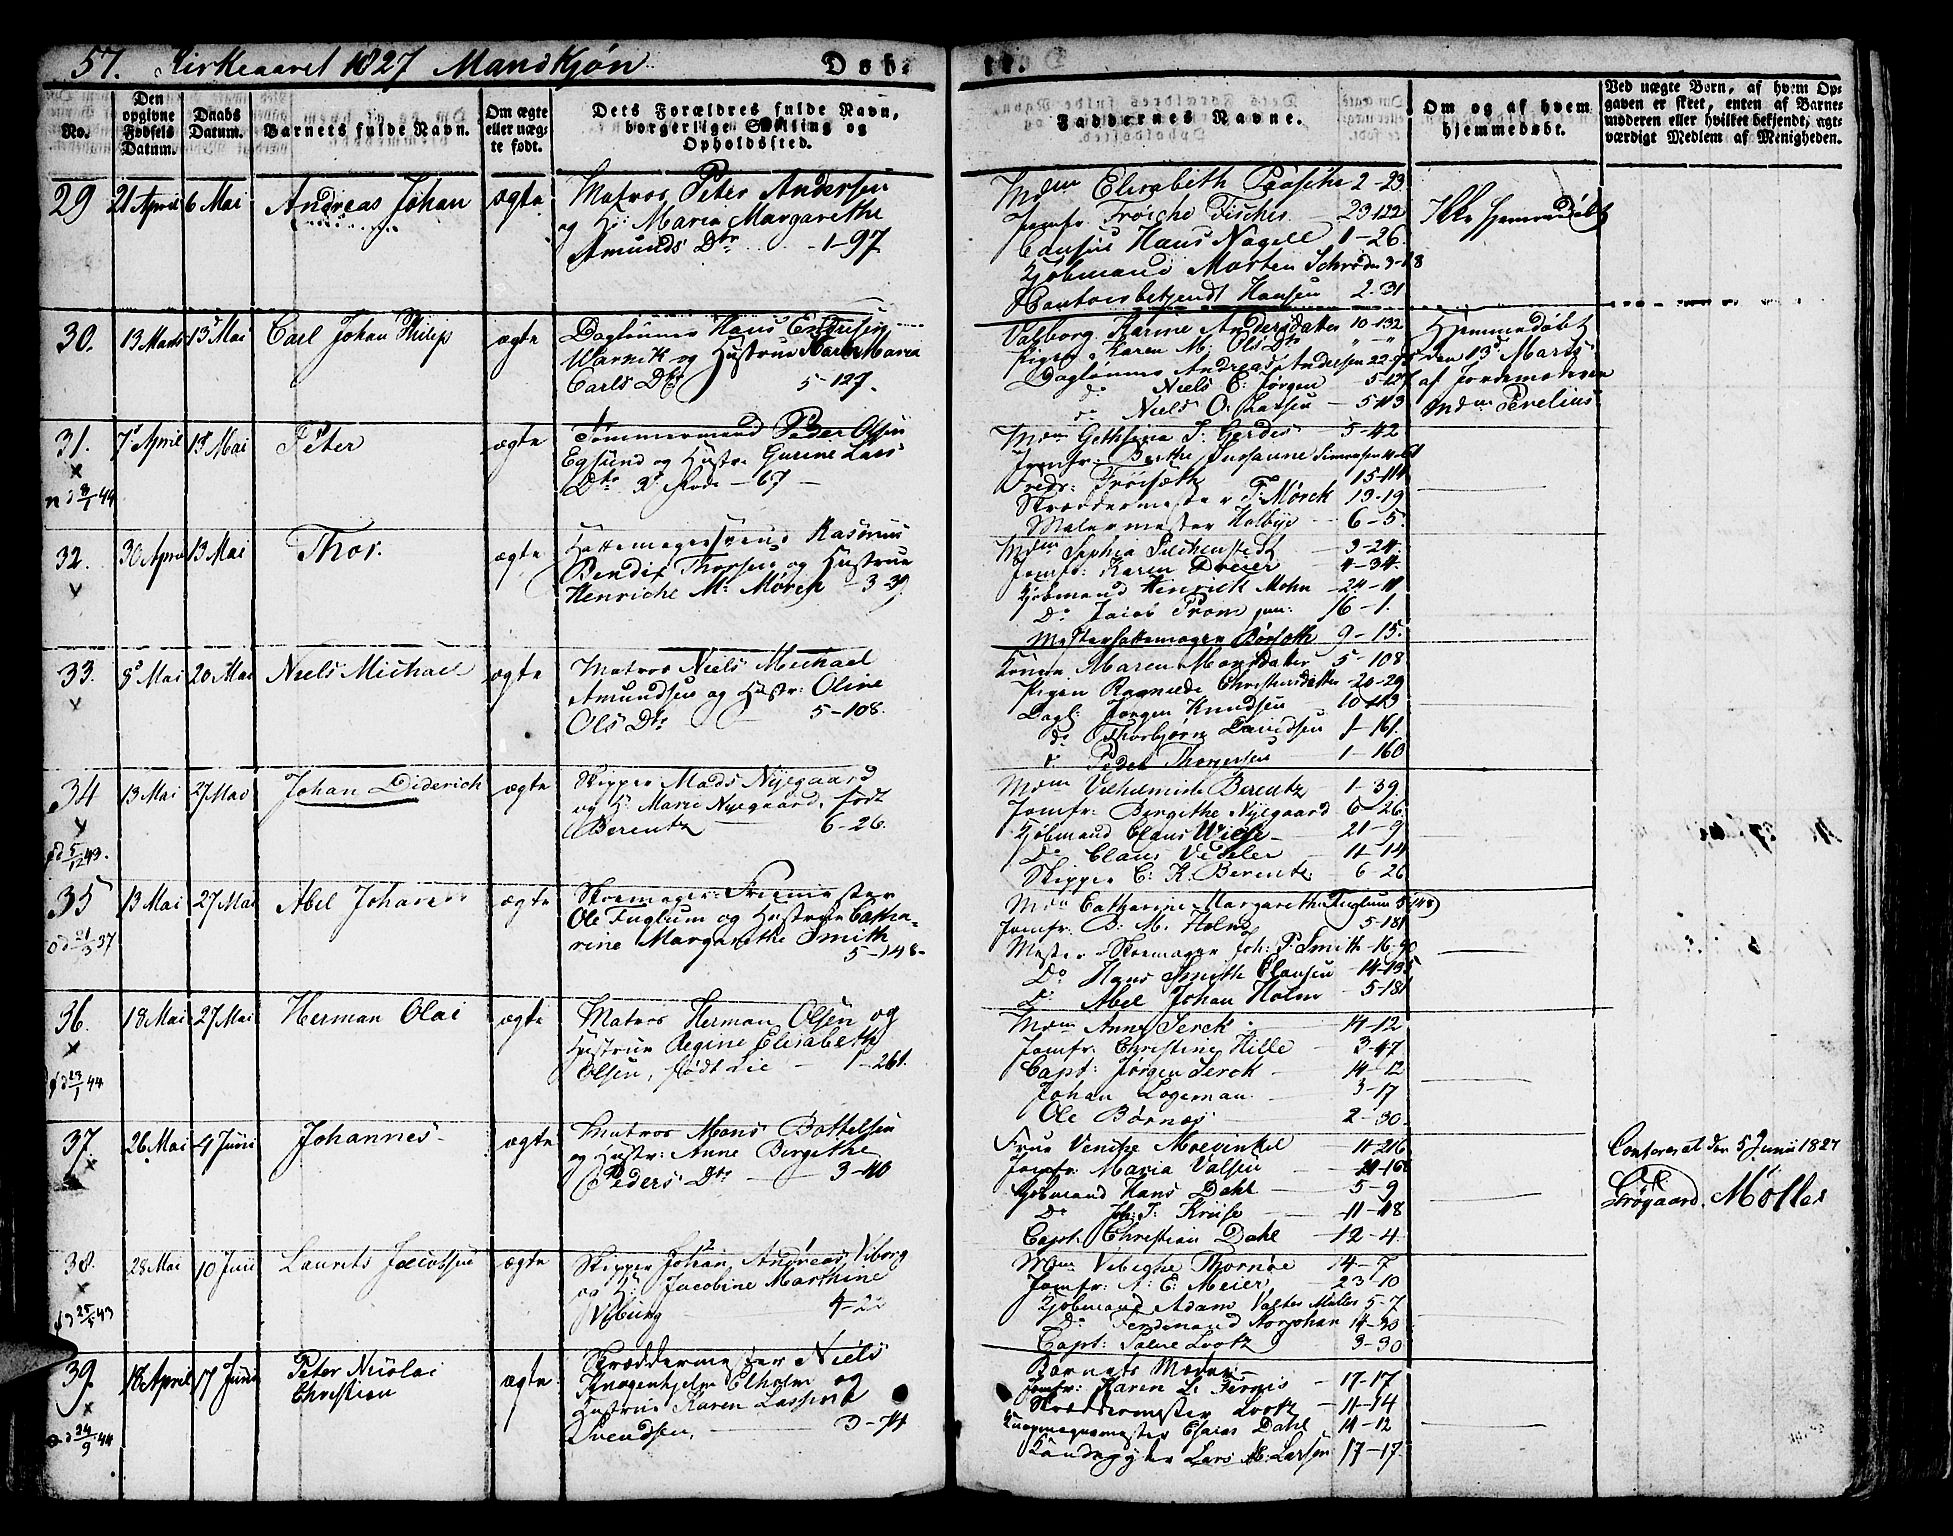 57. Kirkeaaret 1827 Mandkjøn
Døb-
te.
No.
Den opgivne Fødsels Datum.
Daabs Datum.
Barnets fulde Navn.
Om ægte eller uægte født.
Dets Forældres fulde Navn, borgerlige Stilling og Opholdssted.
Faddernes Navne.
Om og af hvem hjemmedøbt.
Ved uægte Børn, af hvem Opgaven er skeet, enten af Barnemoderen eller hvilket bekjendt, agtværdigt Medlem af Menigheden.
29 21 April 6 Mai Andreas Johan ægte
Matros Peter Andersen
og H: Maria Margarethe
Amunds Dtr 1-97
Mdm Elisabeth Paasche 2-23
Jomfr: Frøiche Fischer 23-122
Hans Nagell 1-26.
Kjøbmand Morten Schrøder 3-18
Contoirbetjendt Hansen 2-31
Ikke hjemmedøbt
30. 13 Marts 13 Mai Carl Johan Philip ægte
Daglønner Hans Endresen
Warvik og Hustrue Karen Maria
Carls Dtr 5-127.
Valborg Karine Andersdatter 10-132
Pigen Karen M: Ols Dtr " "
Daglønner Andreas Andersen 22-
do Niels C: Jørgen 5-127
do Niels O. Larsen 5-113
Hjemmedøbt
den 13d Marts
af Jordemoderen
Mdm Perelius
31. 7d April 13d Mai Peter ægte
x
d 8/1 44
Tømmermand Peder Olsen
Egsund og Hustr: Gurine Lars
Dtr 3d Rode - 67 -
Mdm Gethsina J. Gerdes 5-42
Jomfr: Berthe Susanne
Fredr: Frøisæth 15-114
Skræddermester T: Mørck 13-19
Malermester Holbye 6-5.
32. 30 April 13 Mai Thor. ægte
v
Hattemagersvend Rasmus
Bendix Thorsen og Hustrue
Henriche M: Mørch 3-39
Mdm Sophia Lechenstedt 3-24.
Jomfr: Karen Dreier 4-34
Kjøbmand Henrick Mohn 24-11
Do Jaies From jun: 16-1.
Mester hattemager Børsoth 9-15.
33. 8d Mai 20 Mai Niels Michael ægte
v
Matros Niels Michael
Amundsen og Hustr: Oline
Ols Dtr 5-108.
Konen Maren Monsdatter 5-108
Pigen Ragnilde Christensdatter 20-29
Dagl: Jørgen Knudsen 10-113
do Thorbjørn Davidsen 1-161.
do Peder Thorgersen 1-160
34 13 Mai 27 Mai Johan Diderich ægte
v
d 5/12 43.
Skipper Mads Nyegaard
og H: Marie Nyegaard, født
Berentz 6-26.
Mdm Vilhelmine Berentz 1-39.
Jomfr: Bergithe Nyegaard 6-26.
Kjøbmand Claus Wiese 21-9
Do Claus Wesler 11-14
Skipper C: K: Berentz 6-26
35 13 Mai 27 Mai Abel Johan ægte
d 21/3 37
Skoemager Friemester
Ole Fuglum og Hustrue Catha-
rine Margarethe Smith
5-148.
Mdm Catharine Margarethe Fuglum 5-148
Jomfr: B: M. Holm 5-181
Mester Skoemager Joh: P. Smith 16-90
Do Hans Smith Clausen 14-195
Do Abel Johan Holm 5-181
36. 18 Mai 27 Mai Herman Olai ægte
x
d 23/1 44
Matros Herman Olsen og
Hustrue Regine Elisabeth
Olsen, født Lie 1-261.
Mdm Anne Serck 14-12
Jomfr: Christine Hille 3-47
Capt: Jørgen Serck 14-12
Johan Logeman 3-17
Ole Børnæs 2-30
37. 26 Mai 4 Juni Johannes ægte
x
Matros Mons Bottelsen
og Hustr: Anne Birgithe
Peders Dtr 3-40
Frue Venche Mowinkel 11-216
Jomfr: Maria Valsen
Kjøbmand Hans Dahl 5-9
Do Joh: J: Kruse 11-18
Capt: Christian Dahl 12-4
Confereret den 5 Juni 1827
Grøgaard. Møller
38. 28 Mai 10 Juni Laurits Jacobsen ægte
x
d 25/5 43
Skipper Johan Andreas Viborg
og H: Jacobine Marthine
Viborg 4-22
Mdm Vibeghe Thornøe 14-7
Jomfr: A: E. Meier 23-10
Kjøbmand Adam Valter Müller 5-7
Do Ferdinand Norsohan 14-30
Capt: Salve Lootz 3-30
39. 18 April 17 Juni Peter Nicolai ægte
Christian
x
d 24/9 44
Skræddermester Niels
Knagenhjelm Elholm og
Hustrue Karen Lassine
Svendsen, 3-74
Barnets Moder
Jomfr: Karen L. Fernis 17-17
Skræddermester Lootz 11-14
Knapmagermester Esaias Dahl 14-12
Kandestøber Lars M. Larsen 17-17